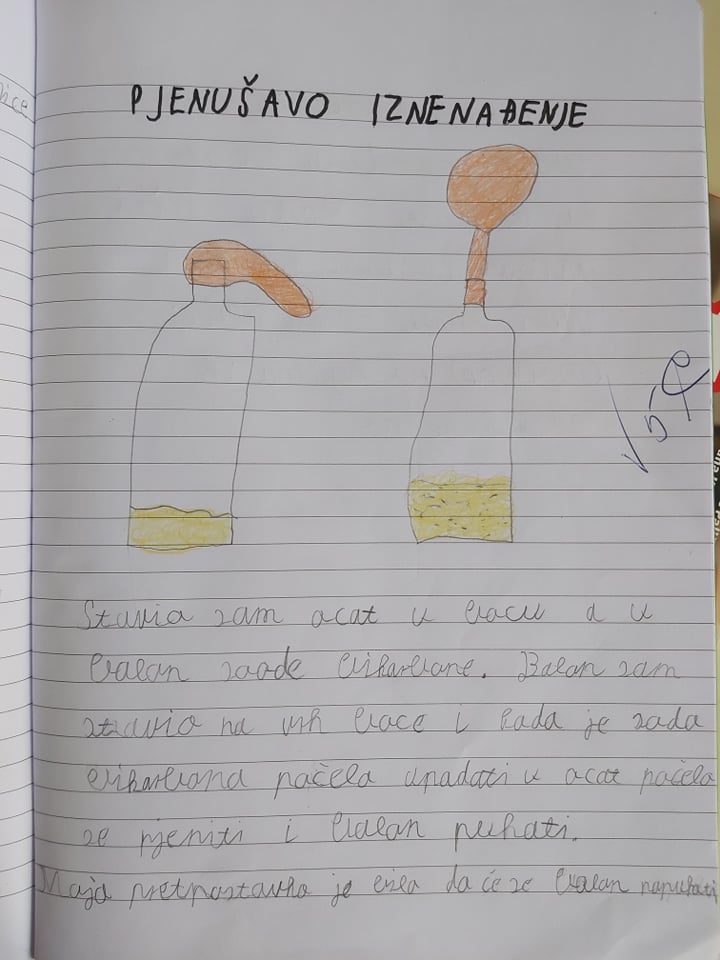 PJENUŠAVO IZNENAĐENJE
Stavio sam ocat u bocu a u
balon soode bikarbone. Balon sam
stavio na vrh boce i kada je soda
bikarbona počela upadati u ocat počela
se pjeniti i balon puhati.
Moja pretpostavka je bila da će se balon napuhati